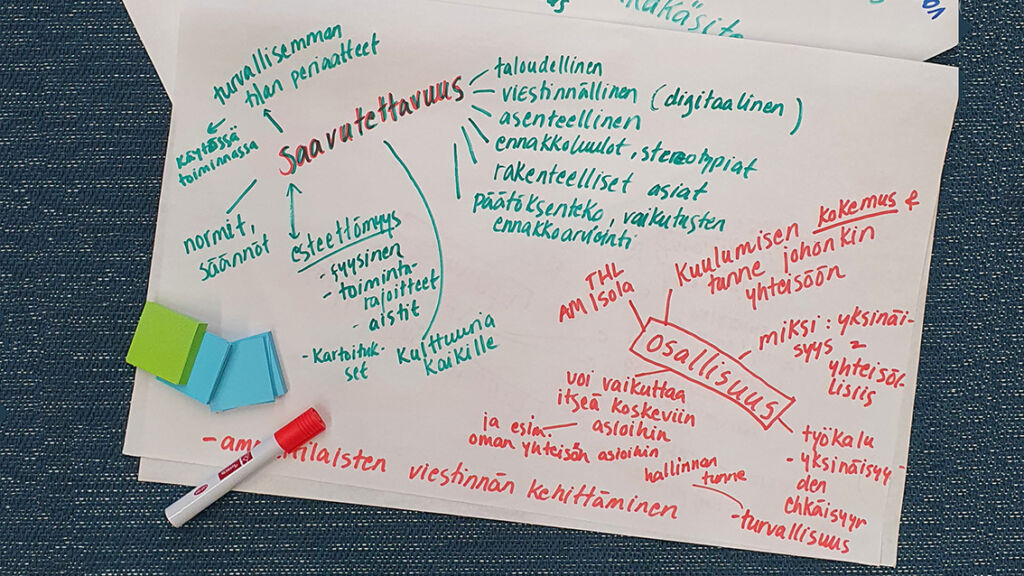 turvallisemman
tilan periaatteet
käytössä
toiminnassa
Saavutettavuus
taloudellinen
viestinnällinen (digitaalinen)
asenteellinen
ennakkoluulot, stereotypiat
rakenteelliset asiat
päätöksenteko, vaikutusten
ennakkoarviointi
normit,
säännöt
esteettömyys
- fyysinen
- toiminta-
rajoitteet
- aistit
- Kartoituk-
set
Kulttuuria
kaikille
THL
AM Isola
Kuulumisen kokemus &
tunne johonkin
yhteisöön
Osallisuus
miksi: yksinäi-
syys
yhteisöl-
lisiis
voi vaikuttaa
itseä koskeviin
asioihin
ja esim.
oman yhteisön asioihin
hallinnan
tunne
- turvallisuus
työkalu
- yksinäisyy-
den
ehkäisyyn
viestinnän kehittäminen